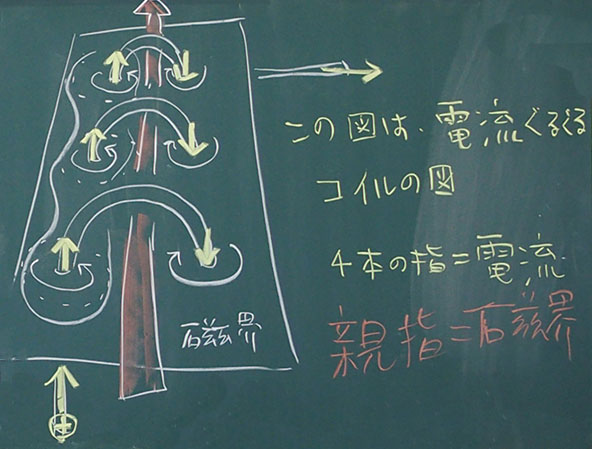 この図は、電流ぐるぐる
コイルの図
4本の指=電流
親指=磁界
磁界